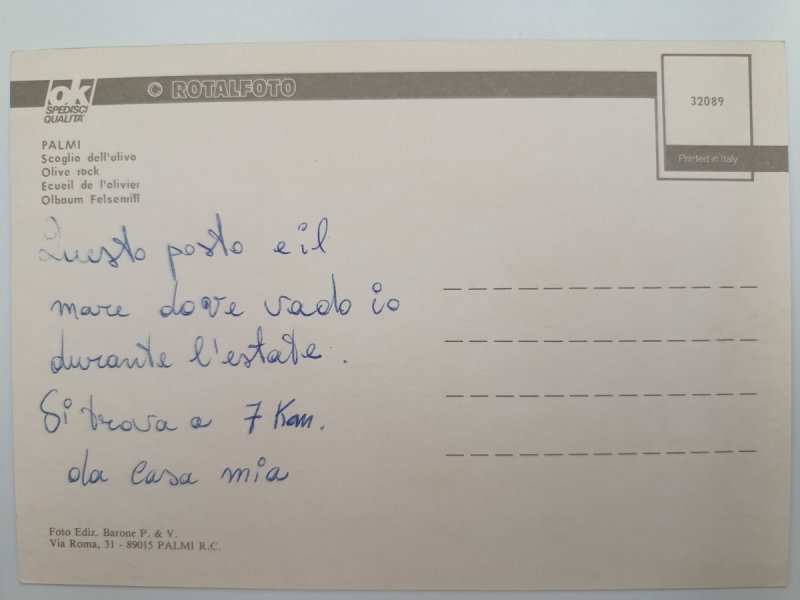 ok
SPEDISCI
QUALITÀ
© ROTALFOTO
32089
Printed in Italy
PALMI
Scoglio dell'ulivo
Olive rock
Ecueil de l'olivier
Olbaum Felsenriff
Questo posto e il
mare dove vado io
durante l'estate.
Si trova a 7 Km.
da casa mia
Foto Ediz. Barone P. & V.
Via Roma, 31 - 89015 PALMI R.C.